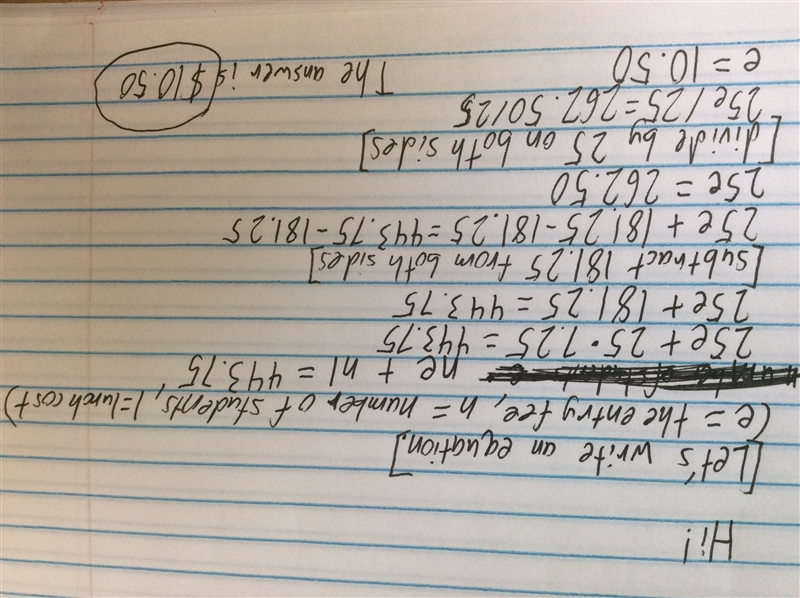 Hi!
[Let's write an equation]
(e = the entry fee, n = number of students, l = lunch cost)
ne + nl = 443.75
25e + 25 • 7.25 = 443.75
25e + 181.25 = 443.75
[subtract 181.25 from both sides]
25e + 181.25 - 181.25 = 443.75 - 181.25
25e = 262.50
[divide by 25 on both sides]
25e / 25 = 262.50 / 25
e = 10.50 The answer is $10.50